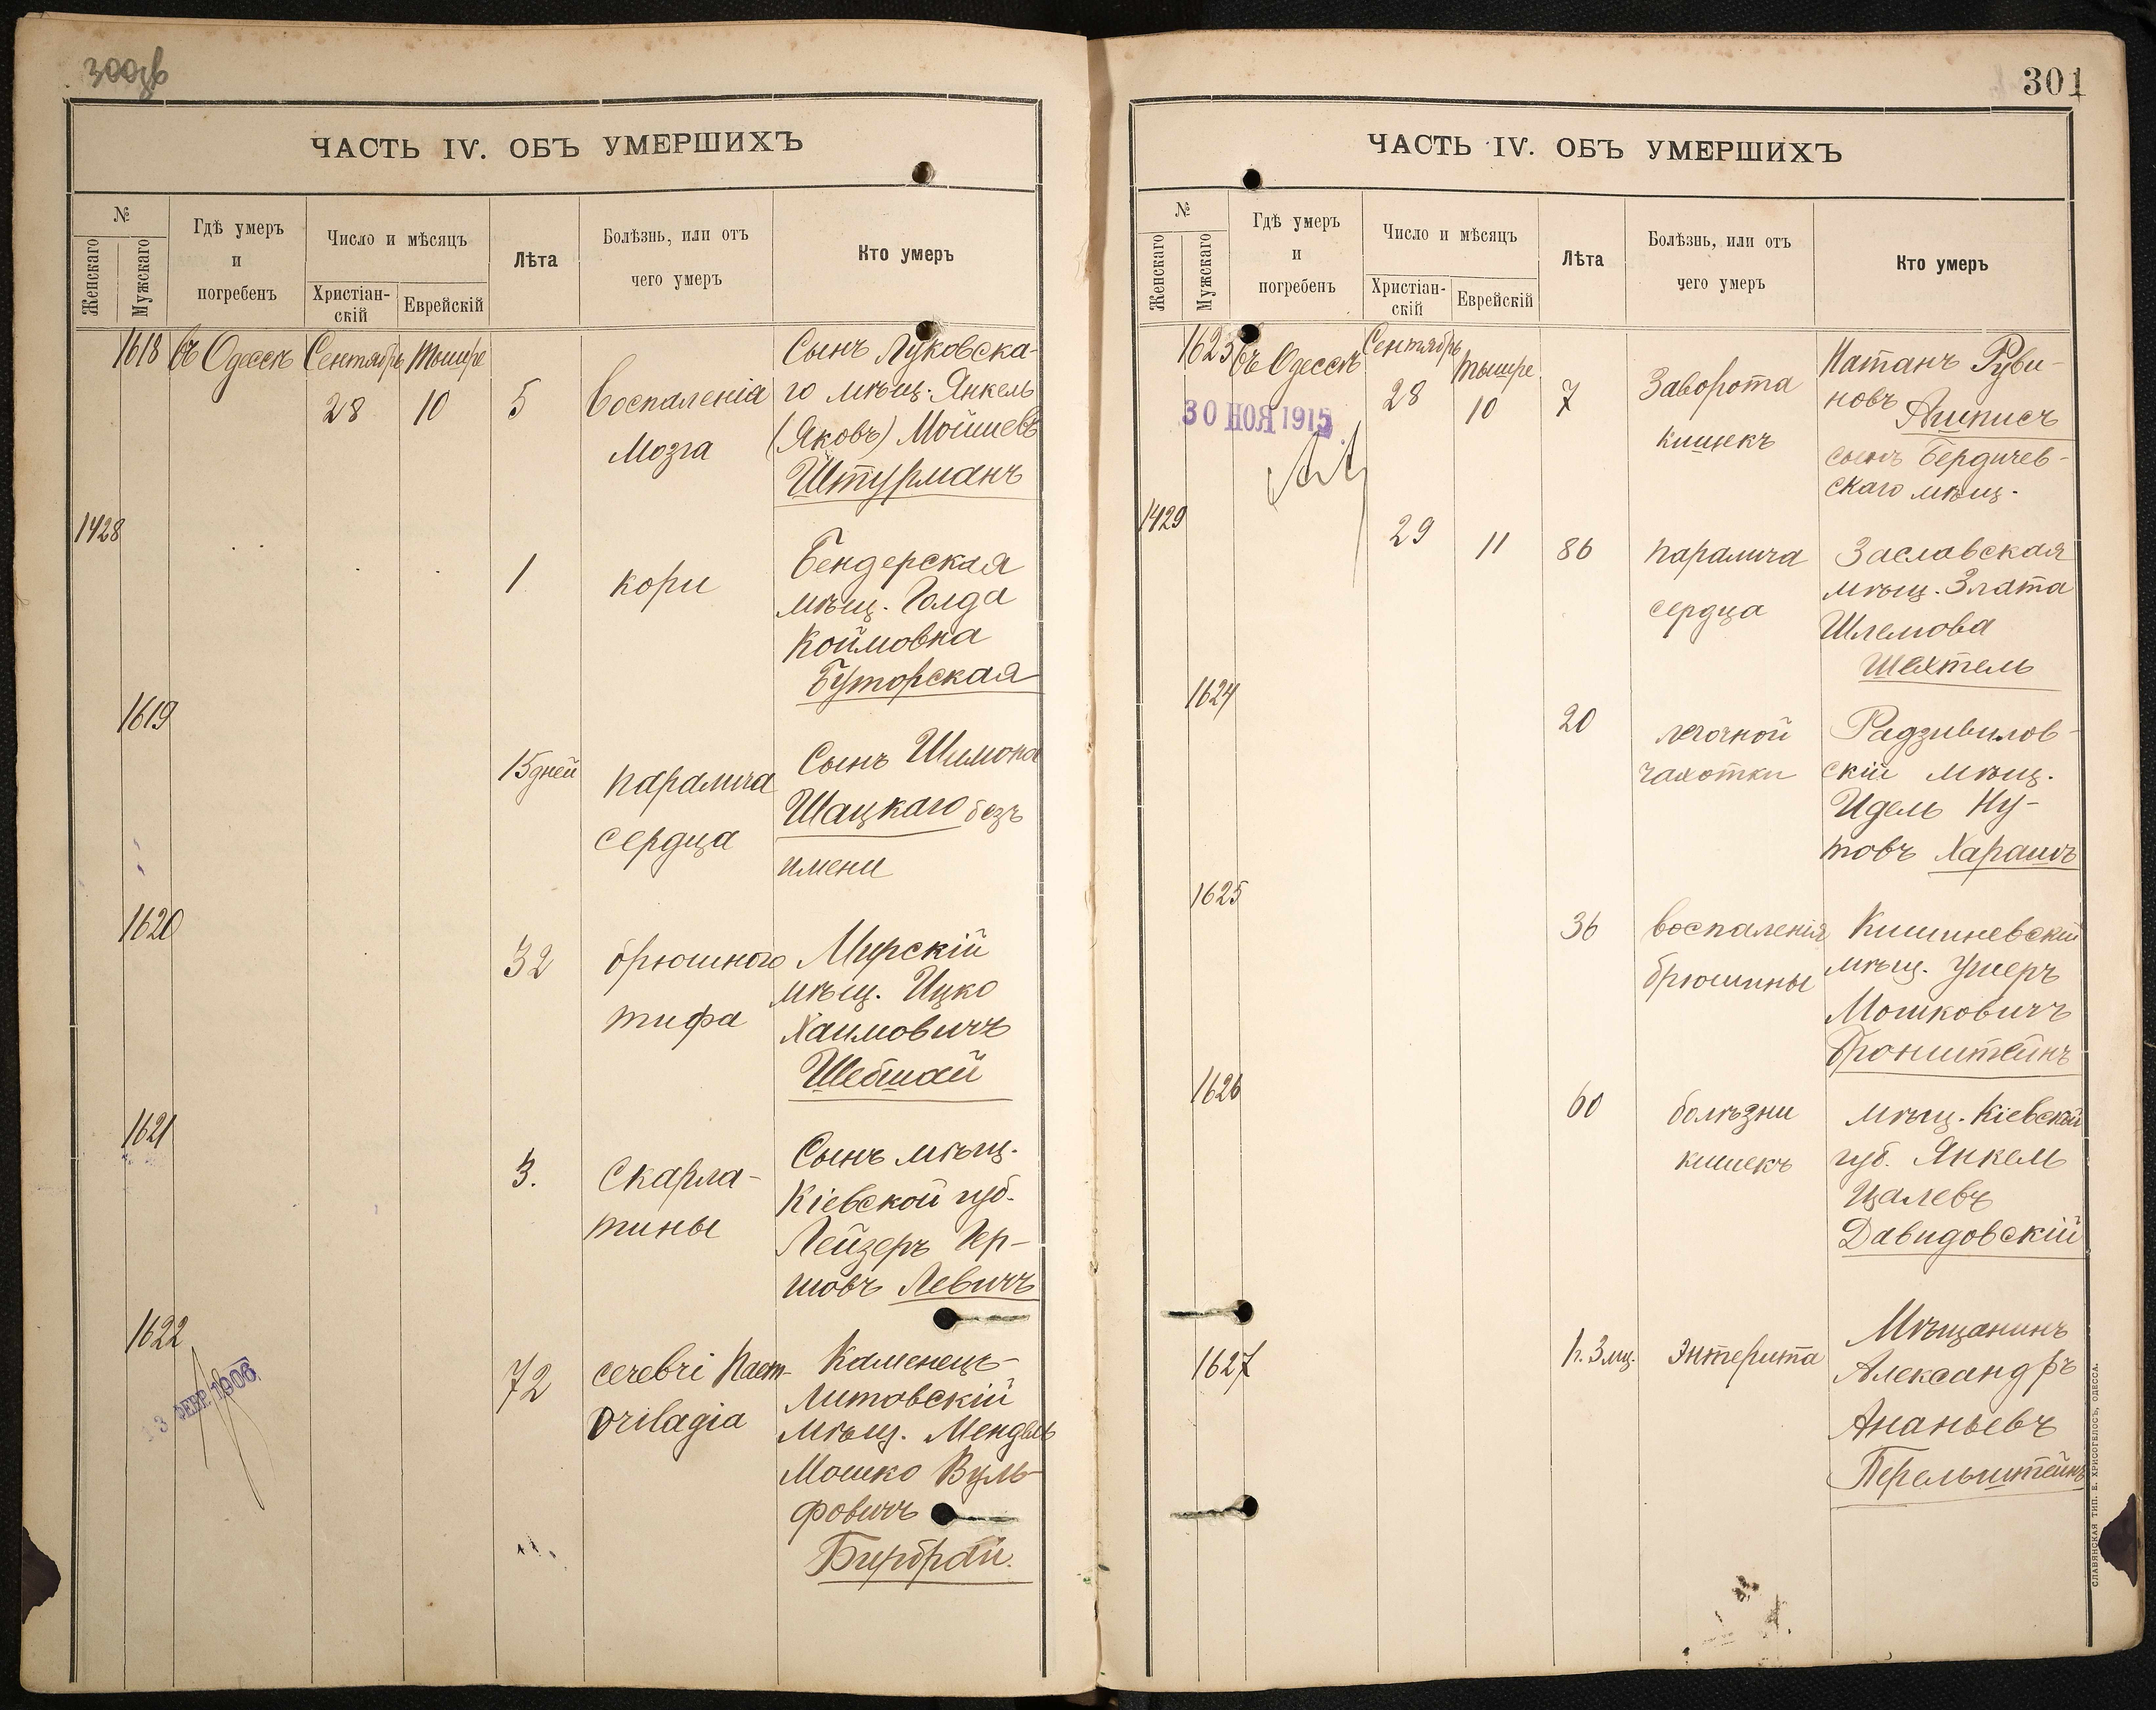 300об
ЧАСТЬ IV. ОБЪ УМЕРШИХЪ
№
Женскаго
Мужскаго
Гдѣ умеръ
и
погребенъ
Число и мѣсяцъ
Христіан-
скій
Еврейскій
Лѣта
Болѣзнь, или отъ
чего умеръ
Кто умеръ
1618 въ Одессѣ Сентябрь Тышре
28 10 5
воспаленія
мозга
Сынъ Луковска-
го мѣщ. Янкель
(Яковъ) Мойшевъ
Штурманъ
1428
1
кори
Бендерская
мѣщ. Голда
Коймовна
Буторская
1619
15 дней
паралича
сердца
Сынъ Шимона
Шацкаго безъ
имени
1620
32
брюшного
тифа
Мирскій
мѣщ. Ицко
Хаимовичъ
Шебшай
1621
3.
Скарла-
тины
Сынъ мѣщ.
Кіевской губ.
Лейзеръ Гер-
шовъ Левичъ
1622
13 ФЕВР. 1906
72
cerebri
Каменецъ-
Литовскій
мѣщ. Мендель
Мошко Вуль-
фовичъ
Бирбрай.
301
ЧАСТЬ IV. ОБЪ УМЕРШИХЪ
№
Женскаго
Мужскаго
Гдѣ умеръ
и
погребенъ
Число и мѣсяцъ
Христіан-
скій
Еврейскій
Лѣта
Болѣзнь, или отъ
чего умеръ
Кто умеръ
1623 въ Одессѣ Сентябрь Тышре
28 10 7
30 НОЯ 1915
Заворота
кишекъ
Натанъ Руви-
новъ
сынъ Бердичев-
скаго мѣщ.
1429
29 11 86
паралича
сердца
Заславская
мѣщ. Злата
Шлемова
Шехтель
1624
20
легочной
чахотки
Радзивилов-
скій мѣщ.
Идель Ну-
товъ Харашъ
1625
36
воспаленія
брюшины
Кишиневскій
мѣщ. Ушеръ
Мошковичъ
Бронштейнъ
1626
60
болѣзни
кишекъ
мѣщ. Кіевской
губ. Янкель
Цалевъ
Давидовскій
1627
1 г. 3 мц.
энтерита
Мѣщанинъ
Александръ
Ананьевъ
Перельштейнъ
СЛАВЯНСКАЯ ТИП. Е. ХРИСОГЕЛОСЪ, ОДЕССА.